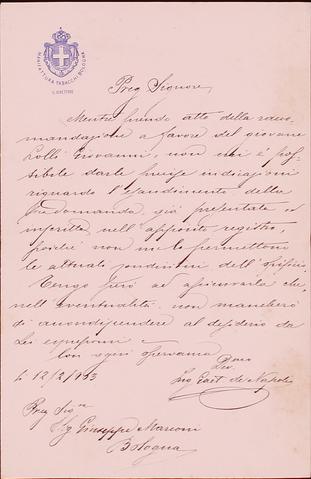 MANIFATTURA TABACCHI BOLOGNA
IL DIRETTORE
Preg Signore
Mentre prendo atto della racco
mandazione a favore del giovane
Lolli Giovanni, non mi è pos
sibile darle lunghe indicazioni
riguardo l'esaudimento della
domanda, già presentata ed
inserita nell'apposito registro,
poichè non me lo permettono
le attuali condizioni dell'opificio.
Tengo però ad assicurarla che,
nell'eventualità non mancherò
di accondiscendere al desiderio da
Lei espressomi
Con ogni osservanza
Dev.
li 12/2/ Ing Gaet de Napoli
Preg Sigre
Sig Giuseppe Marconi
Bologna